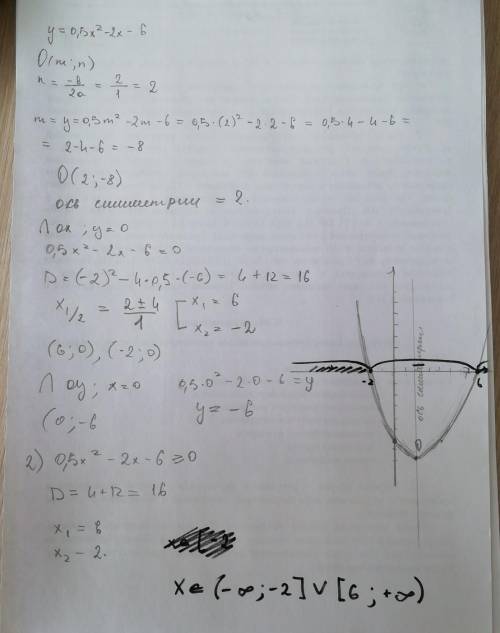 y = 0,5x² - 2x - 6
O(m; n)
n = -b/2a = 2/1 = 2
m = y = 0,5m² - 2m - 6 = 0,5·(2)² - 2·2 - 6 = 0,5·4 - 4 - 6 =
= 2-4-6 = -8
O(2; -8)
ось симметрии = 2.
∩ ox ; y = 0
0,5x² - 2x - 6 = 0
D = (-2)² - 4·0,5·(-6) = 4 + 12 = 16
x₁/₂ = 2±4/1 [ x₁ = 6
x₂ = -2
(6; 0), (-2; 0)
∩ oy ; x = 0 0,5·0² - 2·0 - 6 = y
(0; -6 y = -6
2) 0,5x² - 2x - 6 ≥ 0
D = 4+12 = 16
x₁ = 6
x₂ - 2.
x ∈ (-∞; -2] ∨ [6 ; +∞)
1
-2
6
ось симметрии
0